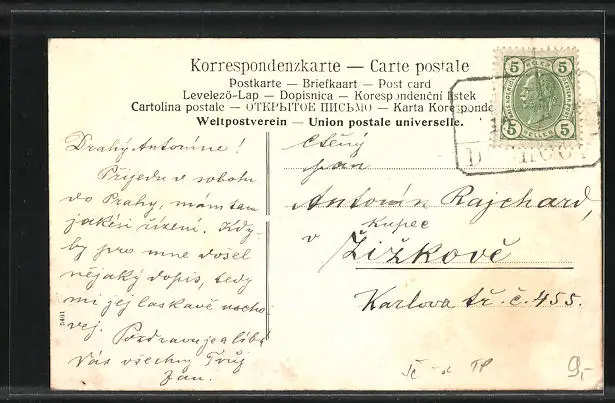 Korrespondenzkarte — Carte postale
Postkarte — Briefkaart — Post card
Levelező-Lap — Dopisnica — Korespondenční lístek
Cartolina postale — ОТКРЫТОЕ ПИСЬМО — Karta Koresponde
Weltpostverein — Union postale universelle.
5 5
5 HELLER 5
Drahý Antoníne!
Přijedu v sobotu
do Prahy, mám tam
jakési řízení. Kdy-
by pro mne došel
nějaký dopis, tedy
mi jej laskavě uscho-
vej.
Pozdravuje a líbá
Vás všechny Tvůj
Jan.
5401
Ctěný
pan
Antonín Rajchard,
kupec
v Žižkově
Karlova tř. č. 455.
9,-